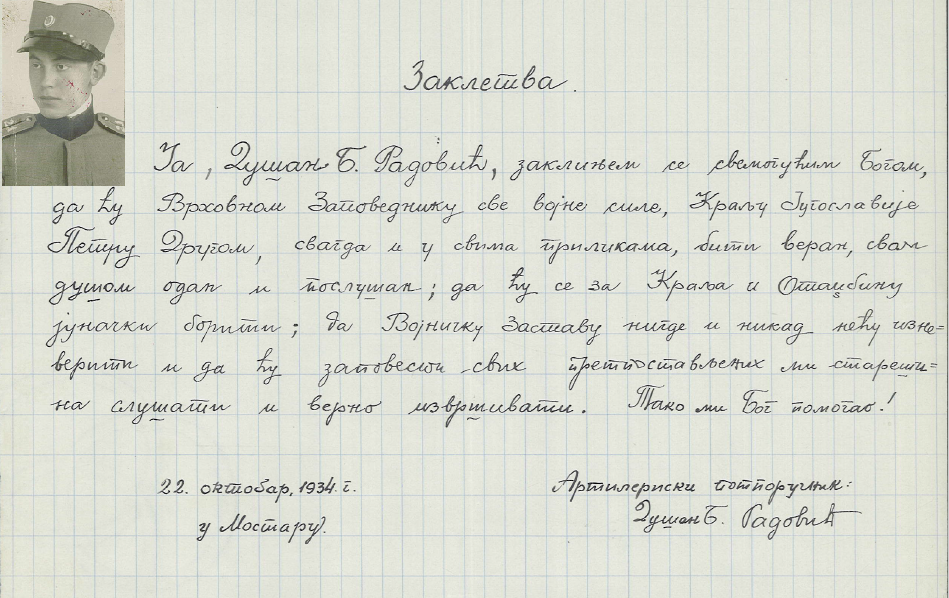 Заклетва.
Ја, Душан Б. Радовић, заклињем се свемогућим Богом,
да ћу Врховном Заповеднику све војне силе, Краљу Југославије
Петру Другом, свагда и у свима приликама, бити веран, свом
душом одан и послушан; да ћу се за Краља и Отаџбину
јуначки борити; да Војничку Заставу нигде и никад нећу изне=
верити и да ћу заповести свих претпостављених ми стареши=
на слушати и верно извршивати. Тако ми Бог помогао!
22. октобар, 1934. г.
у Мостару.
Артилериски потпоручник:
Душан Б. Радовић